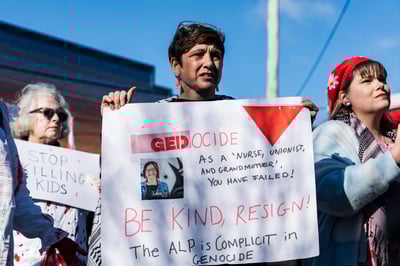 STOP
KILLING
KIDS
GEDOCIDE
AS A 'NURSE, UNIONIST,
AND GRANDMOTHER'.
YOU HAVE FAILED!
BE KIND, RESIGN!
THE ALP IS COMPLICIT IN
GENOCIDE